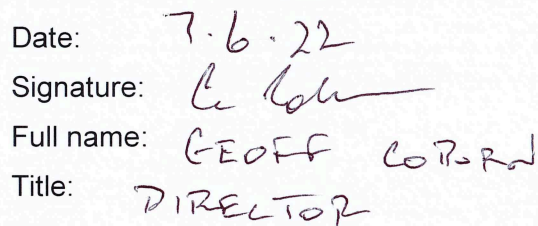 Date: 7.6.22
Signature:
Full name: GEOFF COBURN
Title: DIRECTOR